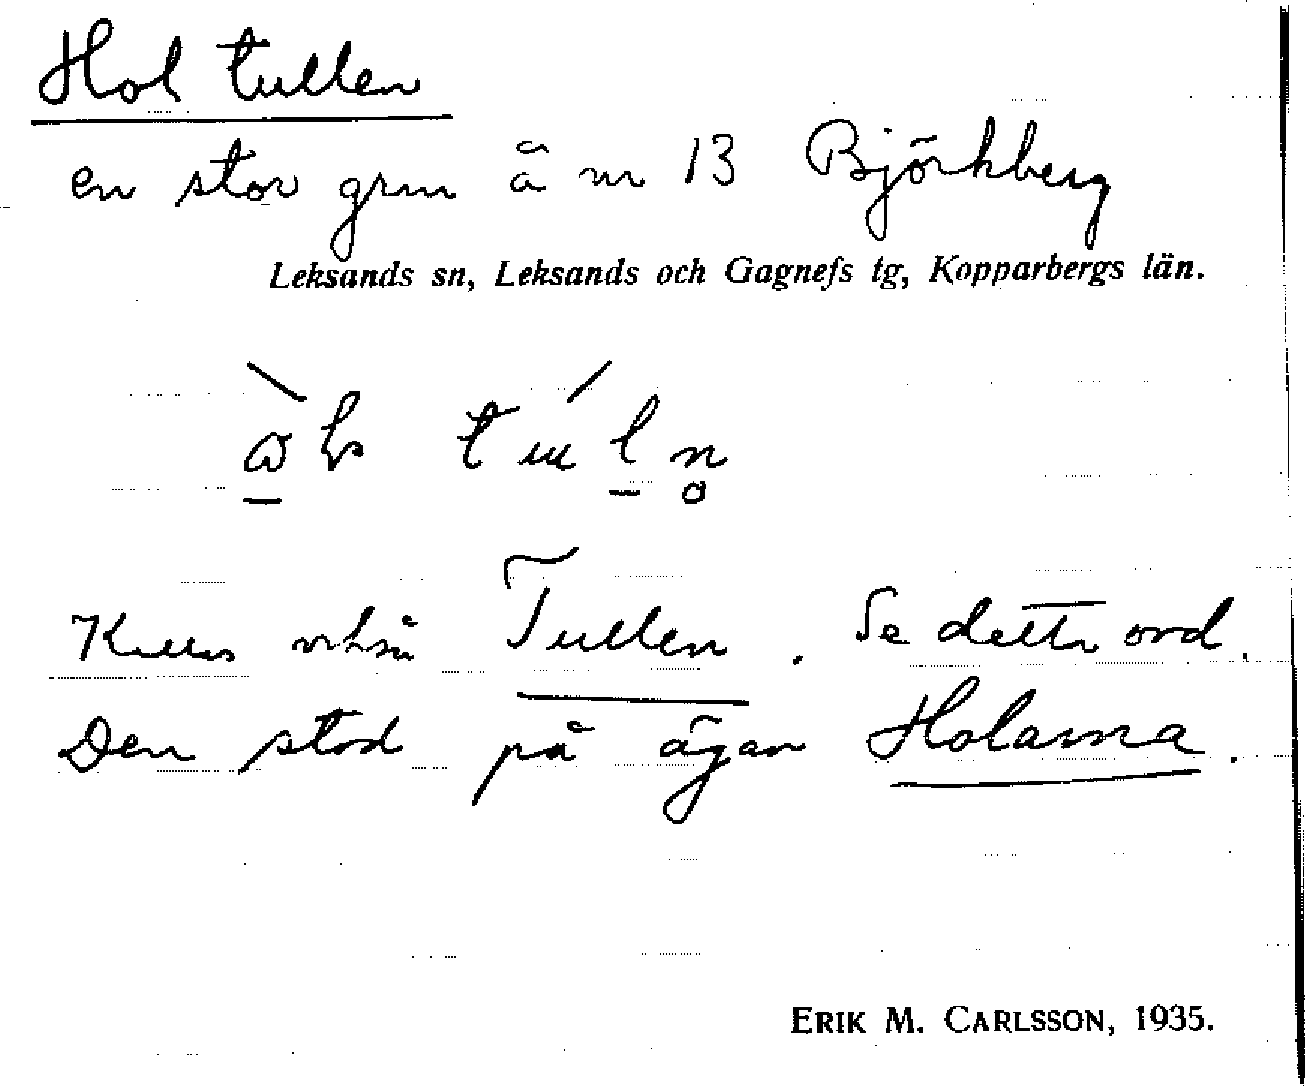 Hol tullen
en stor gran å nr 13 Björkberg
Leksands sn, Leksands och Gagnefs tg, Kopparbergs län.
Kallas också Tullen. Se detta ord.
Den stod på ägan Holarna.
ERIK M. CARLSSON, 1935.